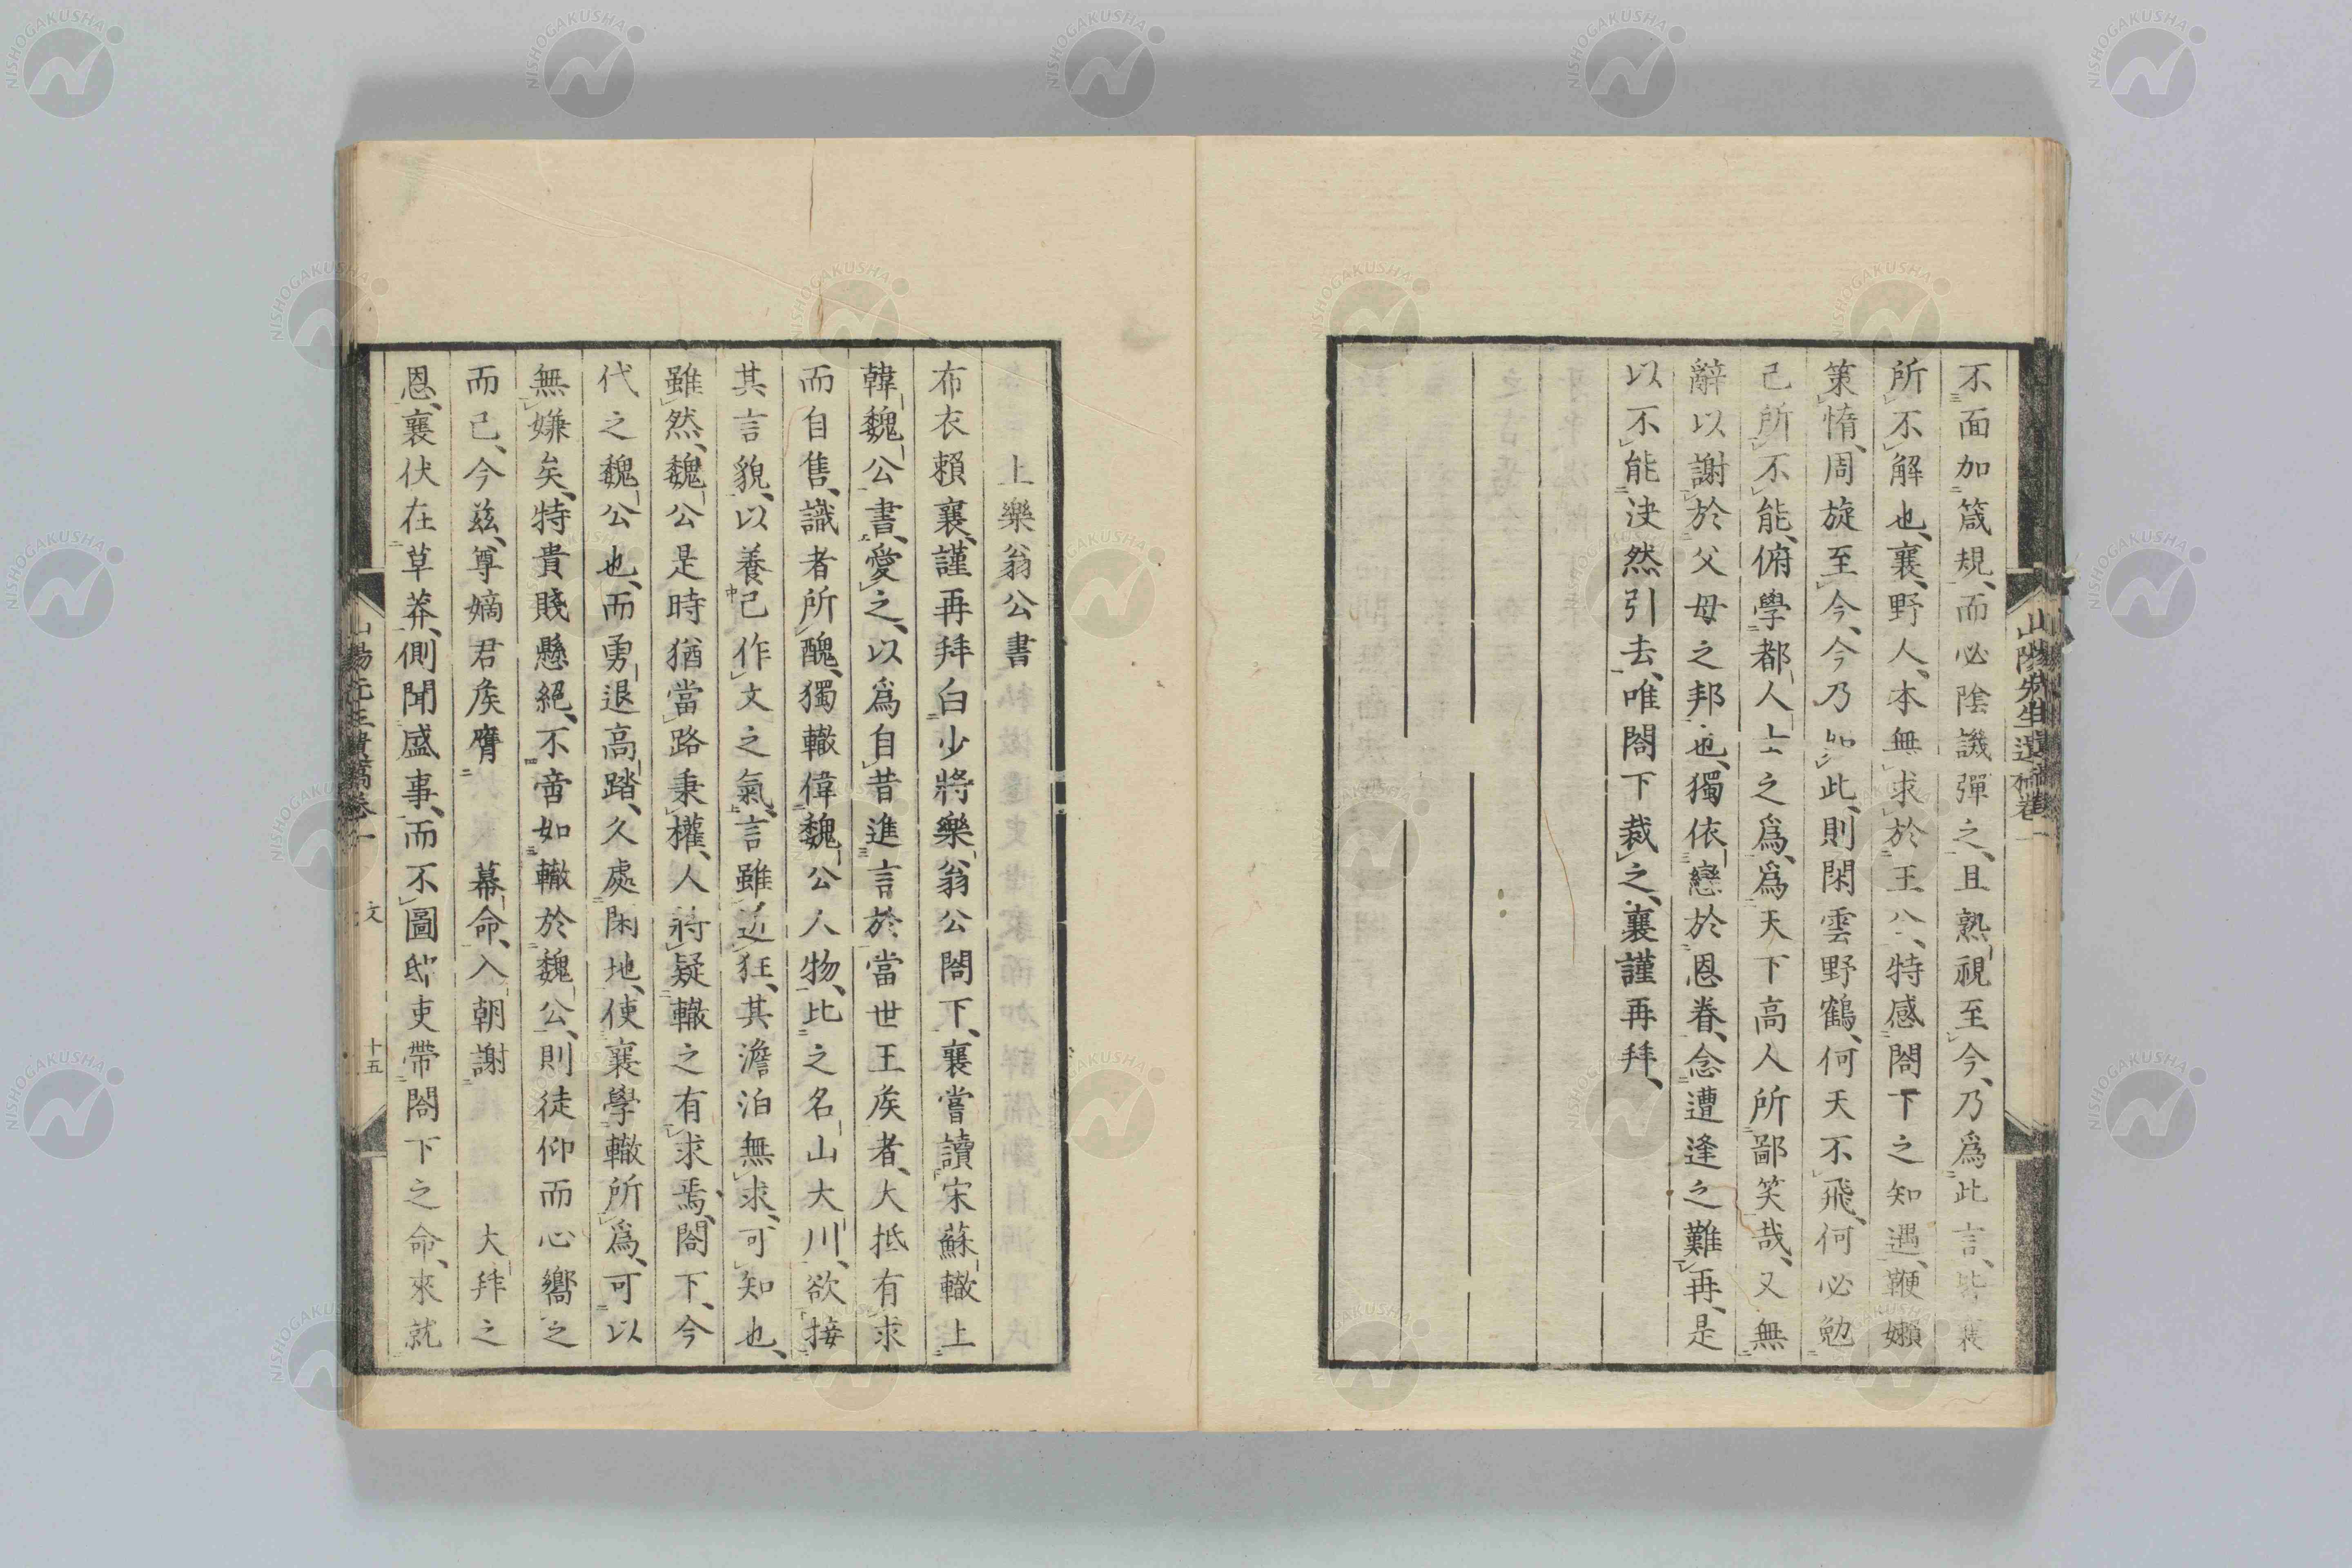 不面加箴規、而必陰譏彈之、且熟視至今、乃爲此言、皆襄
所不解也、襄野人、本無求於王公、特感閤下之知遇、鞭嬾
策惰、周旋至今、今乃如此、則閑雲野鶴、何天不飛、何必勉
己所不能、俯學都人士之爲、爲天下高人所鄙笑哉、又無
辭以謝於父母之邦也、獨依戀於恩眷、念遭逢之難再、是
以不能決然引去、唯閤下裁之、襄謹再拜、
山陽先生遺稿卷一
上樂翁公書
布衣賴襄、謹再拜白少將樂翁公閤下、襄嘗讀宋蘇轍上
韓魏公書、愛之、以爲自昔進言於當世王侯者、大抵有求
而自售、識者所醜、獨轍偉魏公人物、比之名山大川、欲接
其言貌、以養己作文之氣、言雖近狂、其澹泊無求、可知也、
雖然、魏公是時猶當路秉權、人將疑轍之有求焉、閤下、今
代之魏公也、而勇退高踏、久處閑地、使襄學轍所爲、可以
無嫌矣、特貴賤懸絕、不啻如轍於魏公、則徒仰而心嚮之
而已、今玆、尊嫡君侯膺 幕命、入朝謝 大拜之
恩、襄伏在草莽、側聞盛事、而不圖邸吏帶閤下之命、來就
山陽先生遺稿卷一 文 十五
NISHOGAKUSHA